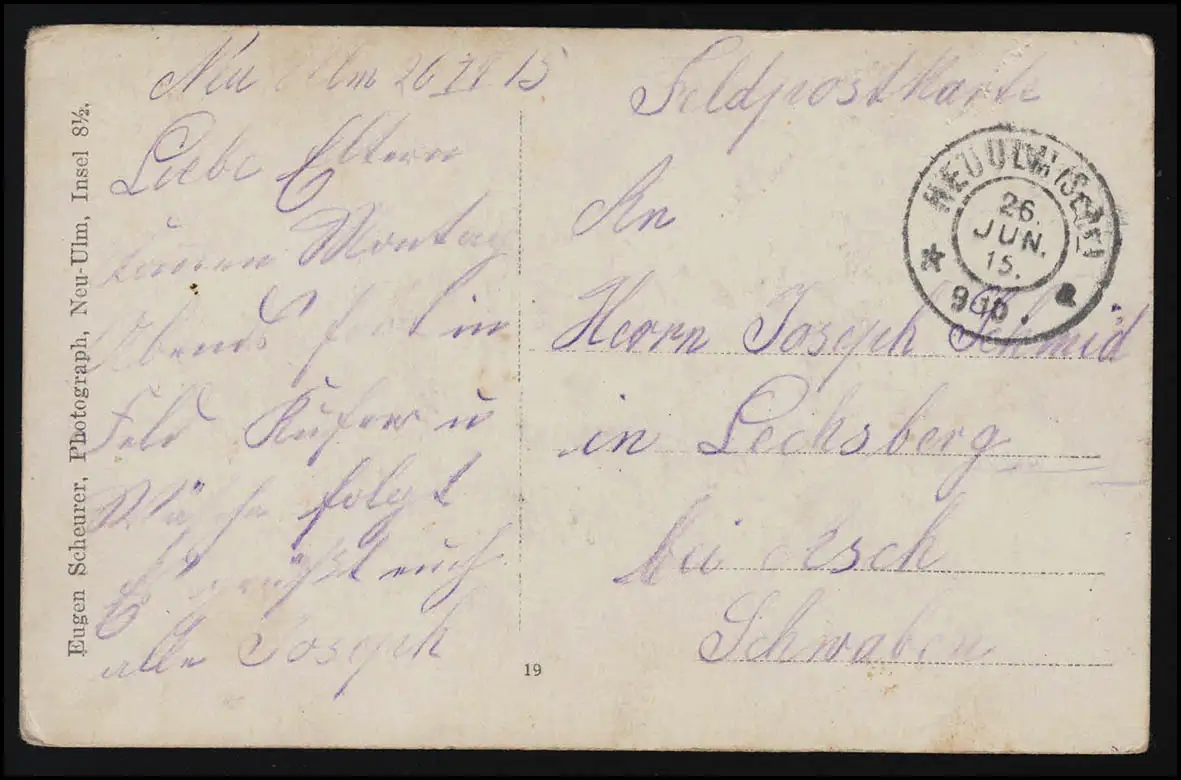 Eugen Scheurer, Photograph, Neu-Ulm, Insel 8½.
Neu Ulm 26 VI 15
Liebe Eltern
Montag
Abends fort in
Feld Kufer u
Wäsche folgt
Es grüßt euch
alle Joseph
19
Feldpostkarte
NEU ULM (Schw)
26.
JUN.
15.
9
An
Herrn Joseph Schmid
in Lechsberg
bei Asch
Schwaben